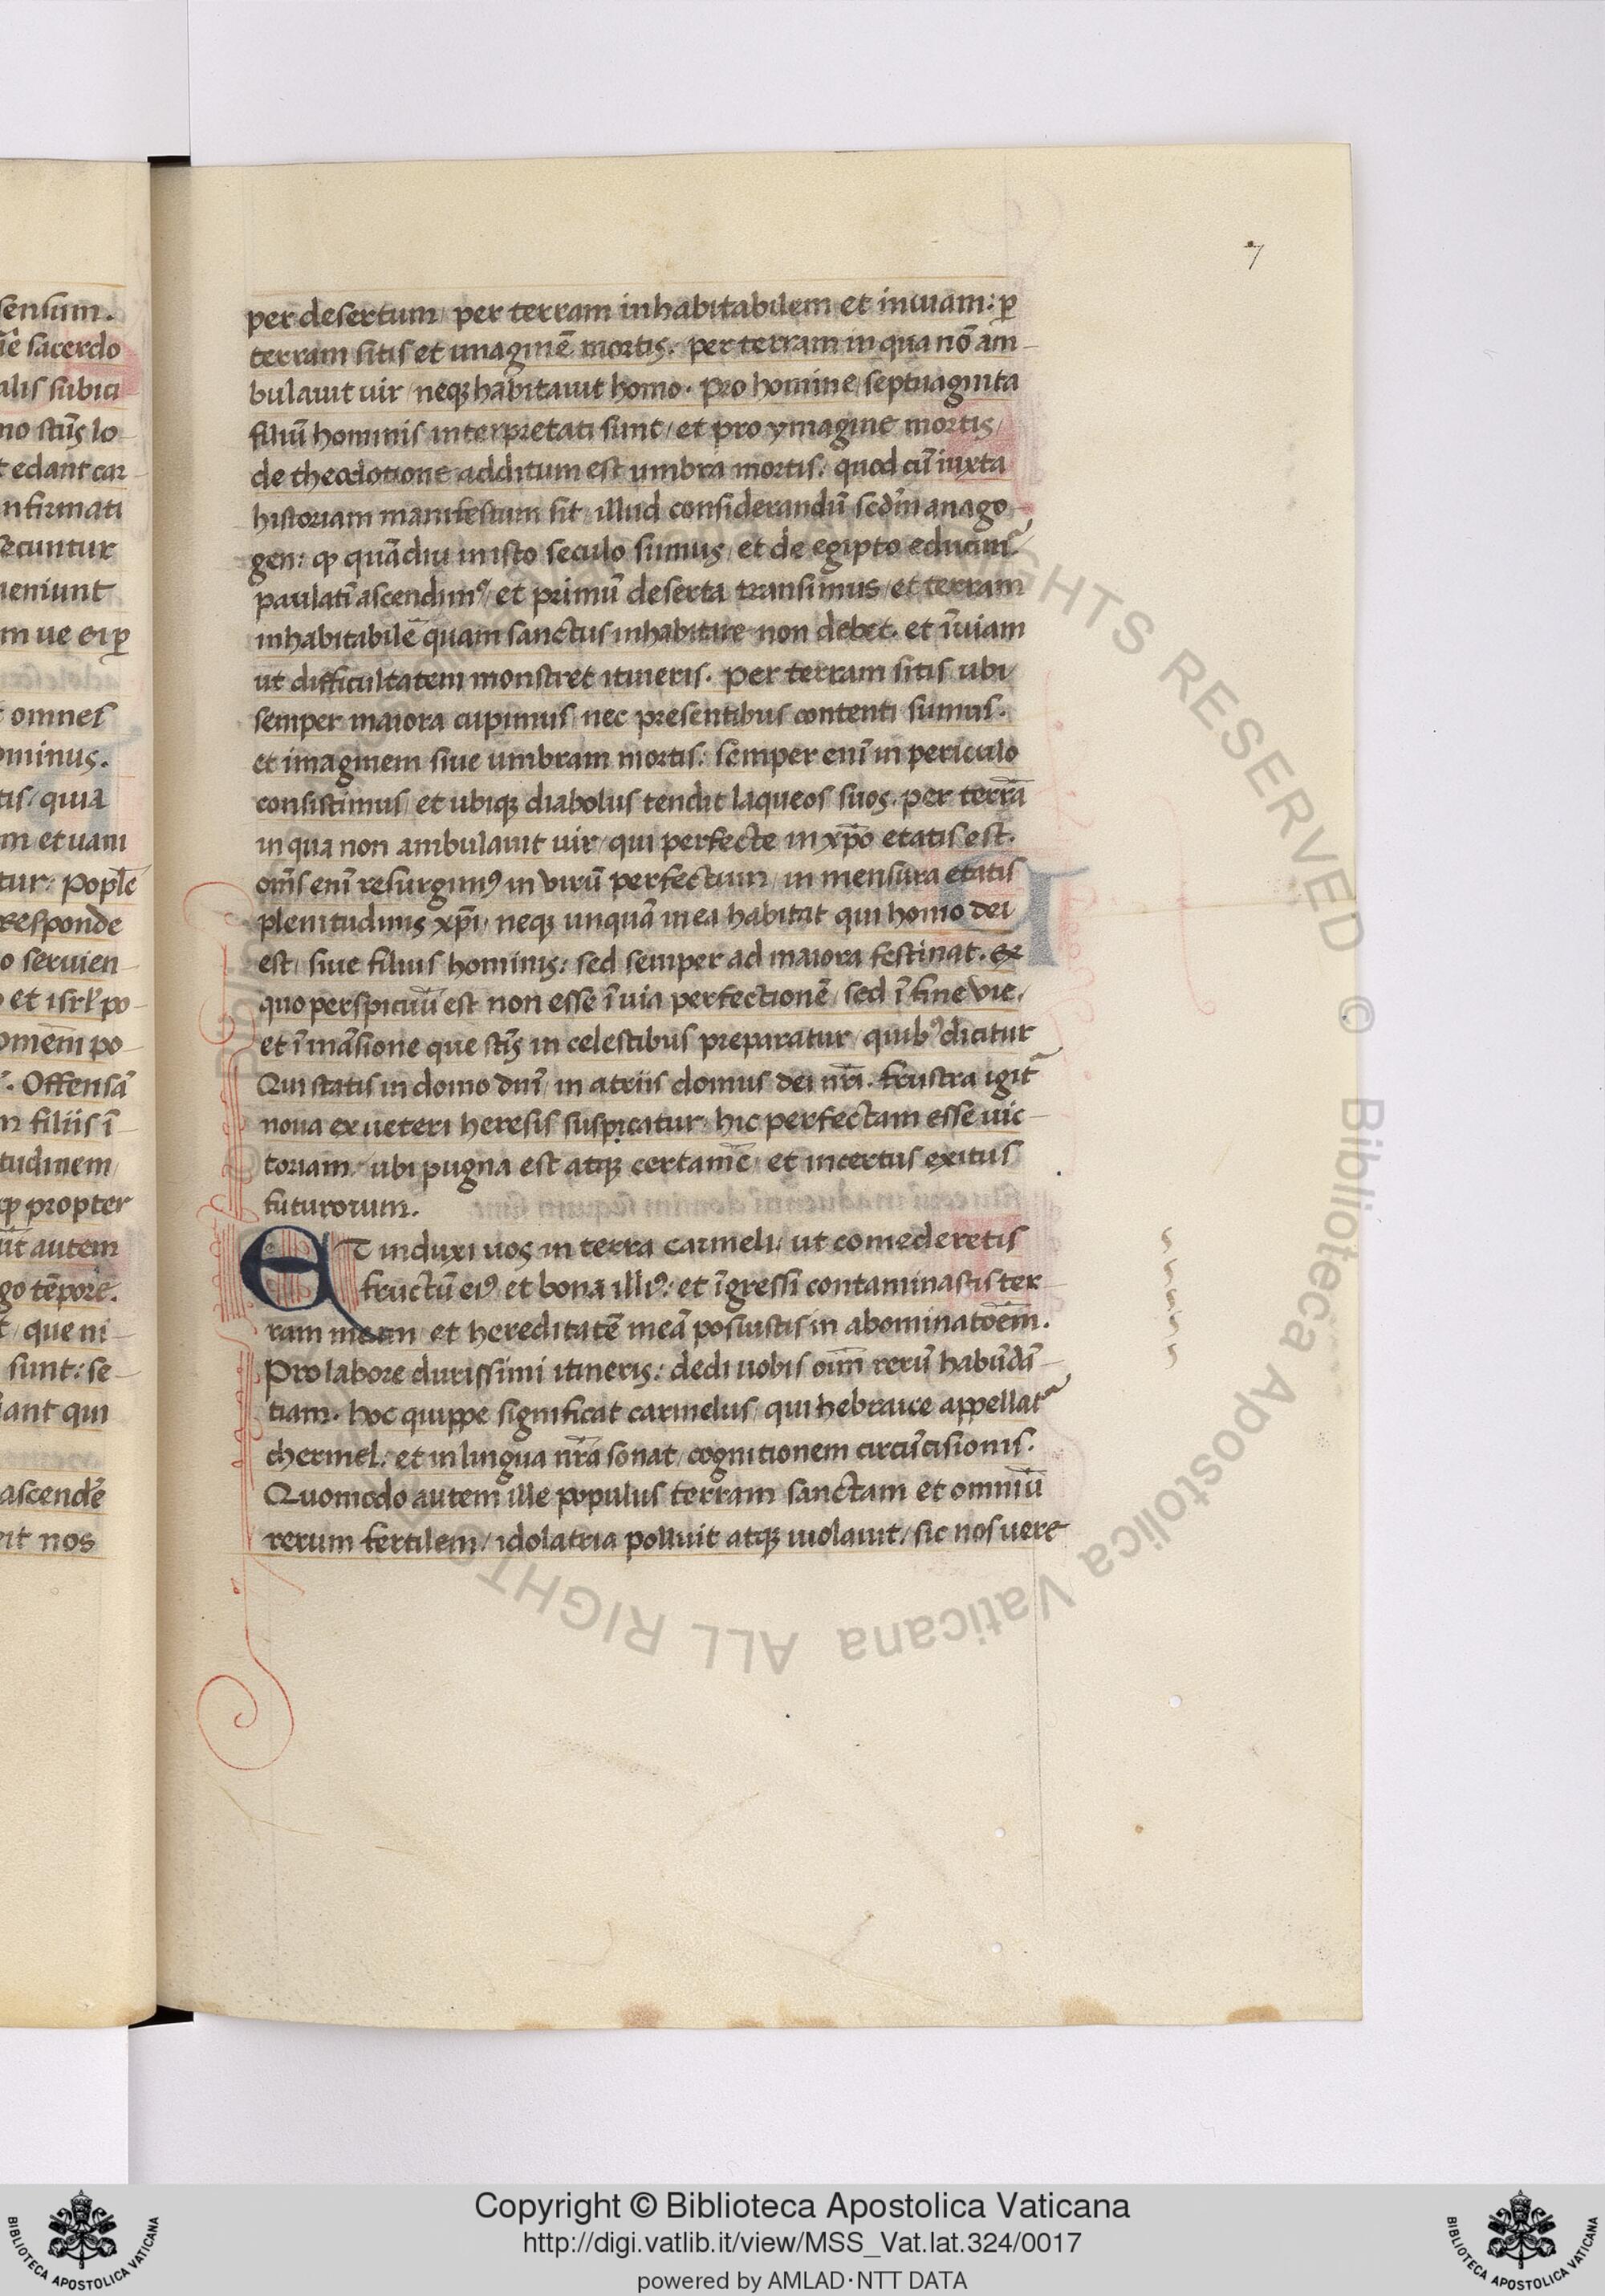 7
sensum.
sacerdo
alis subici
no sc̄tis lo-
edant car-
nfirmati
secuntur
ueniunt
m ue ei ꝑ
omnes
ominus.
tis / quia
m / et uani
tur: Popl̄e
responde
o seruien-
et isrl̓ po-
po-
Offensā
filiis ī
tudinem
ꝙ propter
autem
go tēpore.
que ni-
sunt: se-
ant qui
ascendē
nos
per desertum / per terram inhabitabilem et inuiam: ꝑ
terram sitis et imaginē mortis. per terram in qua nō am-
bulauit uir / neqꝫ habitauit homo. pro homine / septuaginta
filiū hominis interpretati sunt / et pro ymagine mortis /
de theodotione additum est umbra mortis. quod cū iuxta
historiam manifestum sit / illud considerandū scd̄m anago-
gen: ꝙ quādiu in isto seculo sumus / et de egipto educim̄
paulatī ascendimꝰ / et primū deserta transimus / et terram
inhabitabilē quam sanctus inhabitare non debet. et īuiam
ut difficultatem monstret itineris. per terram sitis ubi /
semper maiora cupimus / nec presentibus contenti sumus.
et imaginem siue umbram mortis: semper enī in periculo
consistimus / et ubiqꝫ diabolus tendit laqueos suos. per terrā
in qua non ambulauit uir / qui perfecte in xp̄o etatis est.
om̄s enī resurgimꝰ in virū perfectum / in mensura etatis
plenitudinis xp̄i / neqꝫ unquā in ea habitat qui homo dei
est / siue filius hominis: sed semper ad maiora festinat. ex
quo perspicuū est non esse ī uia perfectionē / sed ī fine vie /
et ī māsione que sc̄tis in celestibus preparatur / quibꝰ dicitur
Qui statis in domo dn̄i / in atriis domus dei nr̄i. frustra igit̄
noua ex ueteri heresis suspicatur / hic perfectam esse uic-
toriam / ubi pugna est atqꝫ certamē / et incertus exitus
futurorum.
ET induxi uos in terra carmeli / ut comederetis
fructū eiꝰ et bona illiꝰ: et īgressi contaminastis ter-
ram meam / et hereditatē meā posuistis in abominatōem̄.
Pro labore durissimi itineris: dedi uobis oim̄ rerū habūdā-
tiam. hoc quippe significat carmelus / qui hebraice appellat̄
chermel: et in lingua nr̄a sonat / cognitionem circūcisionis.
Quomodo autem ille populus terram sanctam et omniū
rerum fertilem / idolatria polluit atqꝫ uiolauit / sic nos uere
ALL RIGHTS RESERVED © Biblioteca Apostolica Vaticana
Copyright © Biblioteca Apostolica Vaticana
http://digi.vatlib.it/view/MSS_Vat.lat.324/0017
powered by AMLAD·NTT DATA
BIBLIOTECA APOSTOLICA VATICANA
BIBLIOTECA APOSTOLICA VATICANA